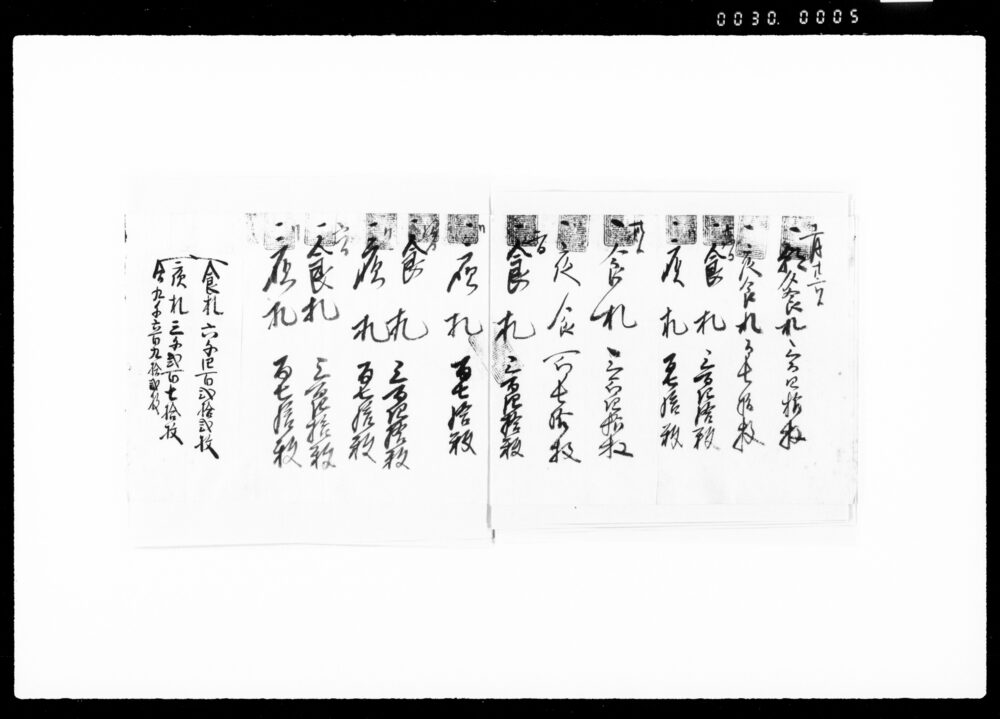 0030.0005
二月十二日
一 食札 三百四拾枚
一 夜食札 百七拾枚
一 食札 三百四拾枚
一 夜札 百七拾枚
一 食札 三百四拾枚
一 夜食 百七拾枚
一 食札 三百四拾枚
一 夜札 百七拾枚
一 食札 三百四拾枚
一 夜札 百七拾枚
一 食札 三百四拾枚
一 夜札 百七拾枚
食札 六千四百弐拾弐枚
夜札 三千弐百七拾枚
合九千六百九拾弐枚